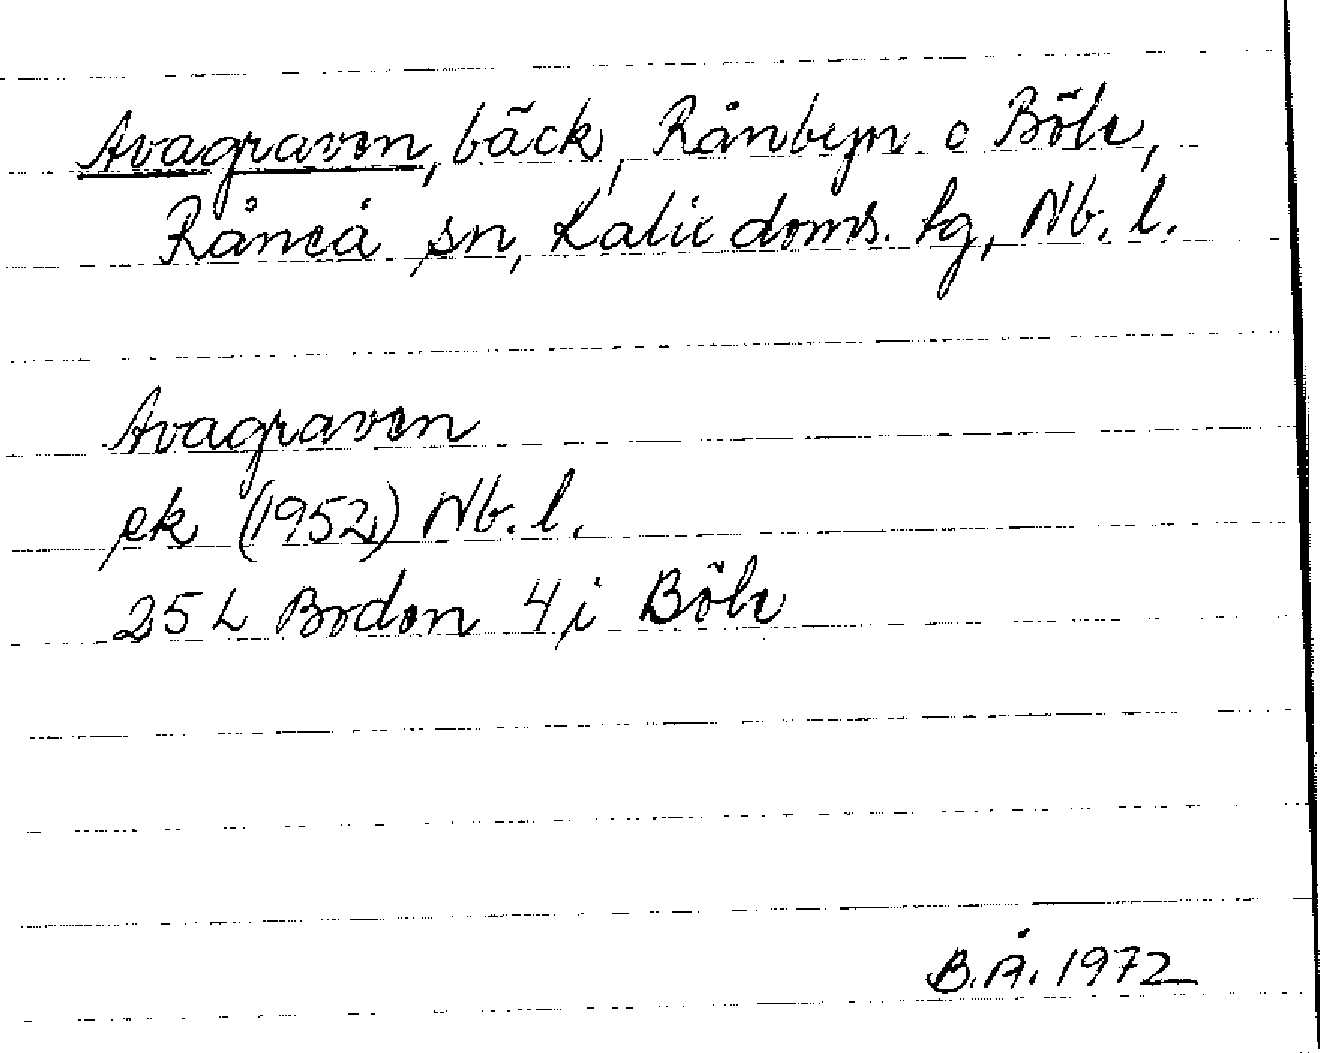 Avagraven, bäck, Rånbyn o Böle,
Råneå sn, Kalix doms. lg, Nb. l.
Avagraven
ek (1952) Nb. l.
25 L Boden 4 i Böle
B.Å. 1972